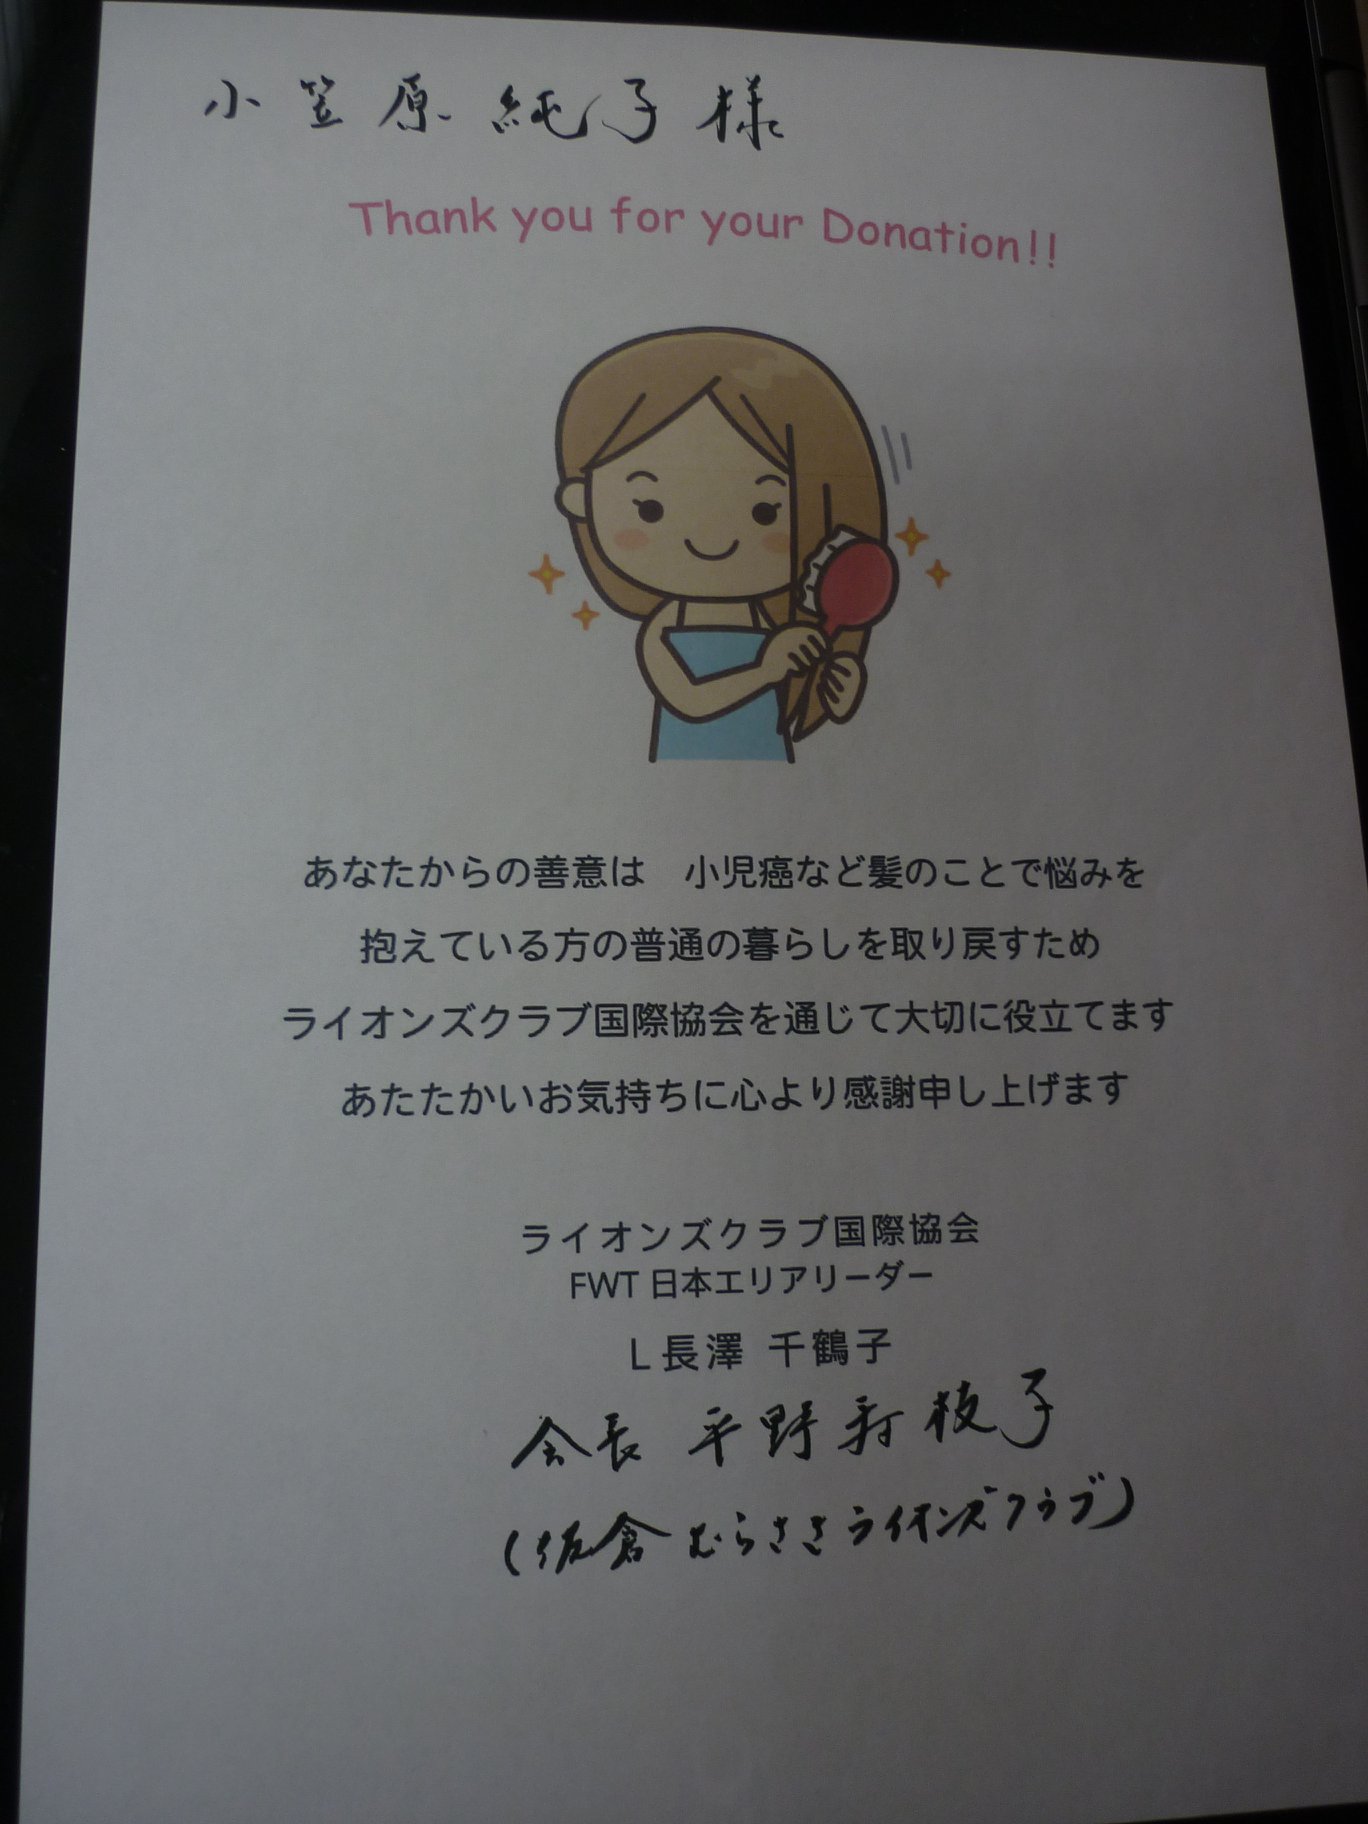 小笠原純子様
Thank you for your Donation!!
あなたからの善意は　小児癌など髪のことで悩みを
抱えている方の普通の暮らしを取り戻すため
ライオンズクラブ国際協会を通じて大切に役立てます
あたたかいお気持ちに心より感謝申し上げます
ライオンズクラブ国際協会
FWT 日本エリアリーダー
L 長澤 千鶴子
会長 平野 枝子
(佐倉むらさきライオンズクラブ)